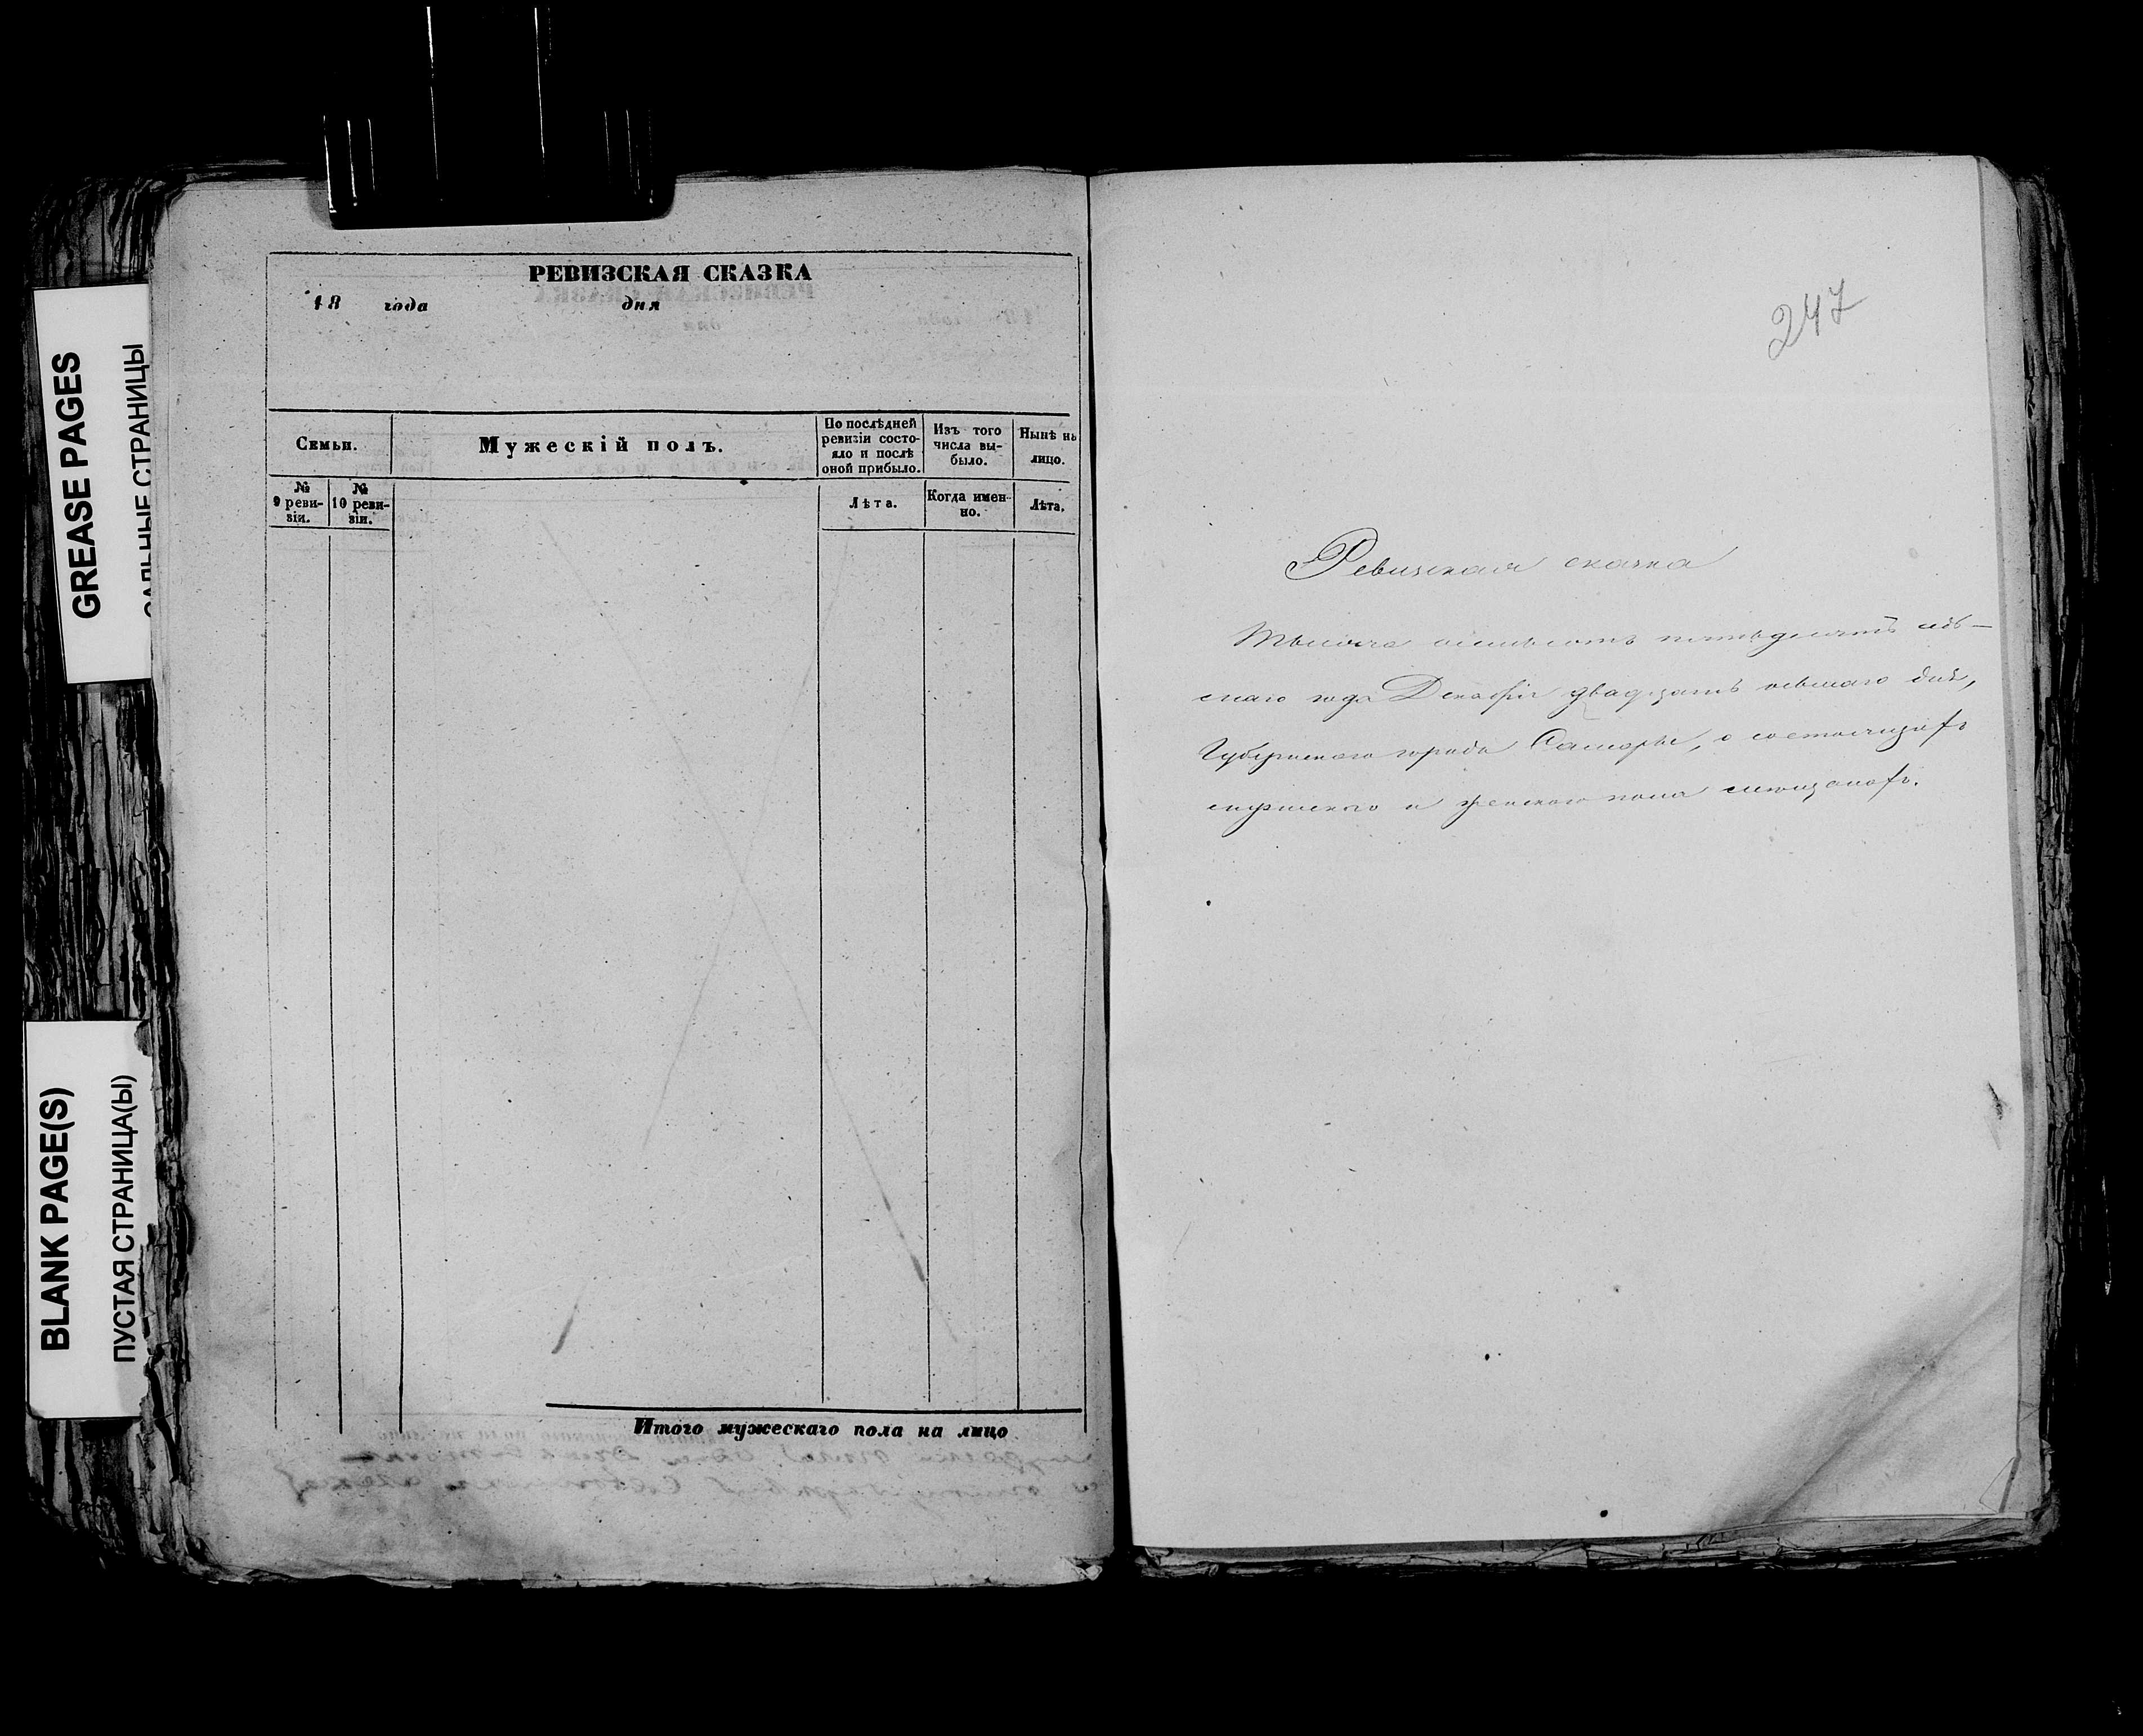 GREASE PAGES
САЛЬНЫЕ СТРАНИЦЫ
BLANK PAGE(S)
ПУСТАЯ СТРАНИЦА(Ы)
РЕВИЗСКАЯ СКАЗКА
18 года дня
Семьи.
Мужескій полъ.
По послѣдней
ревизіи состо-
яло и послѣ
оной прибыло.
Изъ того
числа вы-
было.
Нынѣ на
лицо.
№
9 реви-
зіи.
№
10 реви-
зіи.
Лѣта.
Когда имен-
но.
Лѣта.
Итого мужескаго пола на лицо
247
Ревизская сказка
Тысяча восемьсотъ пятьдесятъ
года Декабря двадцать перваго дня,
Губернскаго города Самары, о состоящихъ
мужескаго и женскаго пола мѣщанахъ.